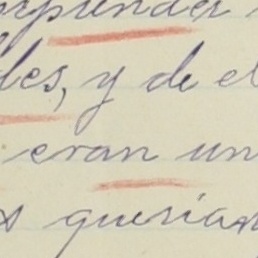 orprender
des, y de el
eran un
s querían